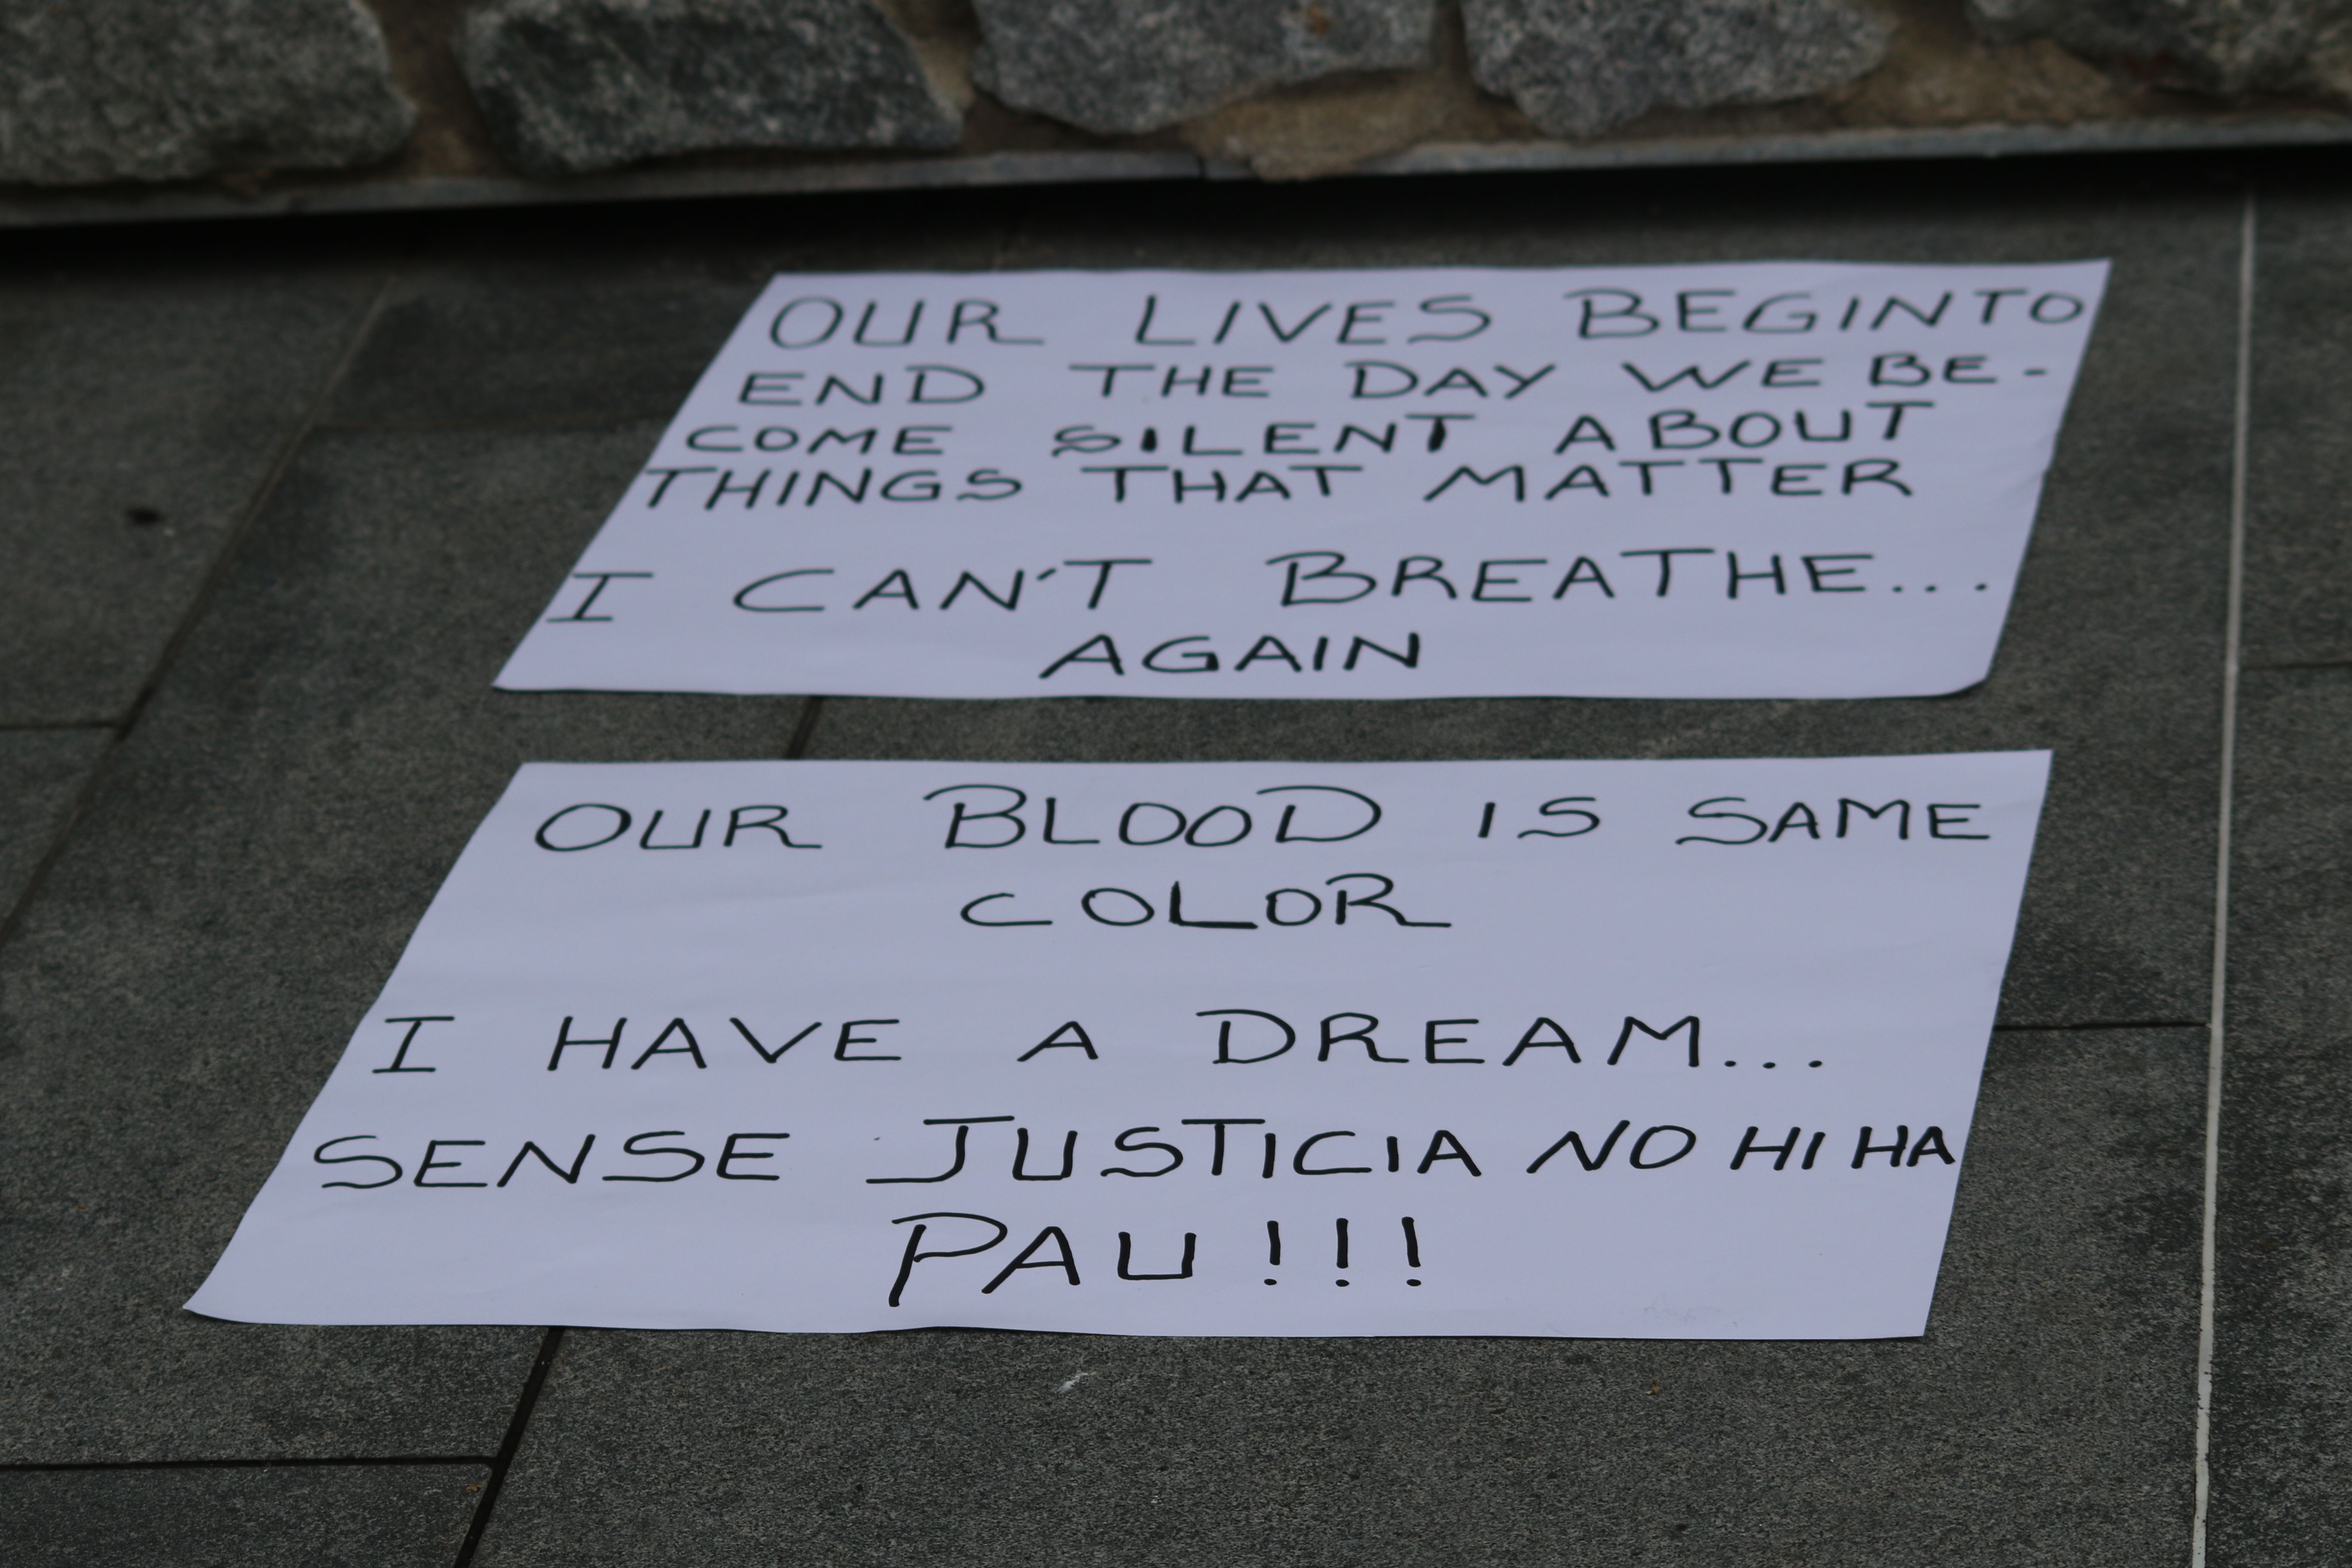 OUR LIVES BEGIN TO
END THE DAY WE BE-
COME SILENT ABOUT
THINGS THAT MATTER
I CAN'T BREATHE...
AGAIN
OUR BLOOD IS SAME
COLOR
I HAVE A DREAM...
SENSE JUSTICIA NO HI HA
PAU!!!